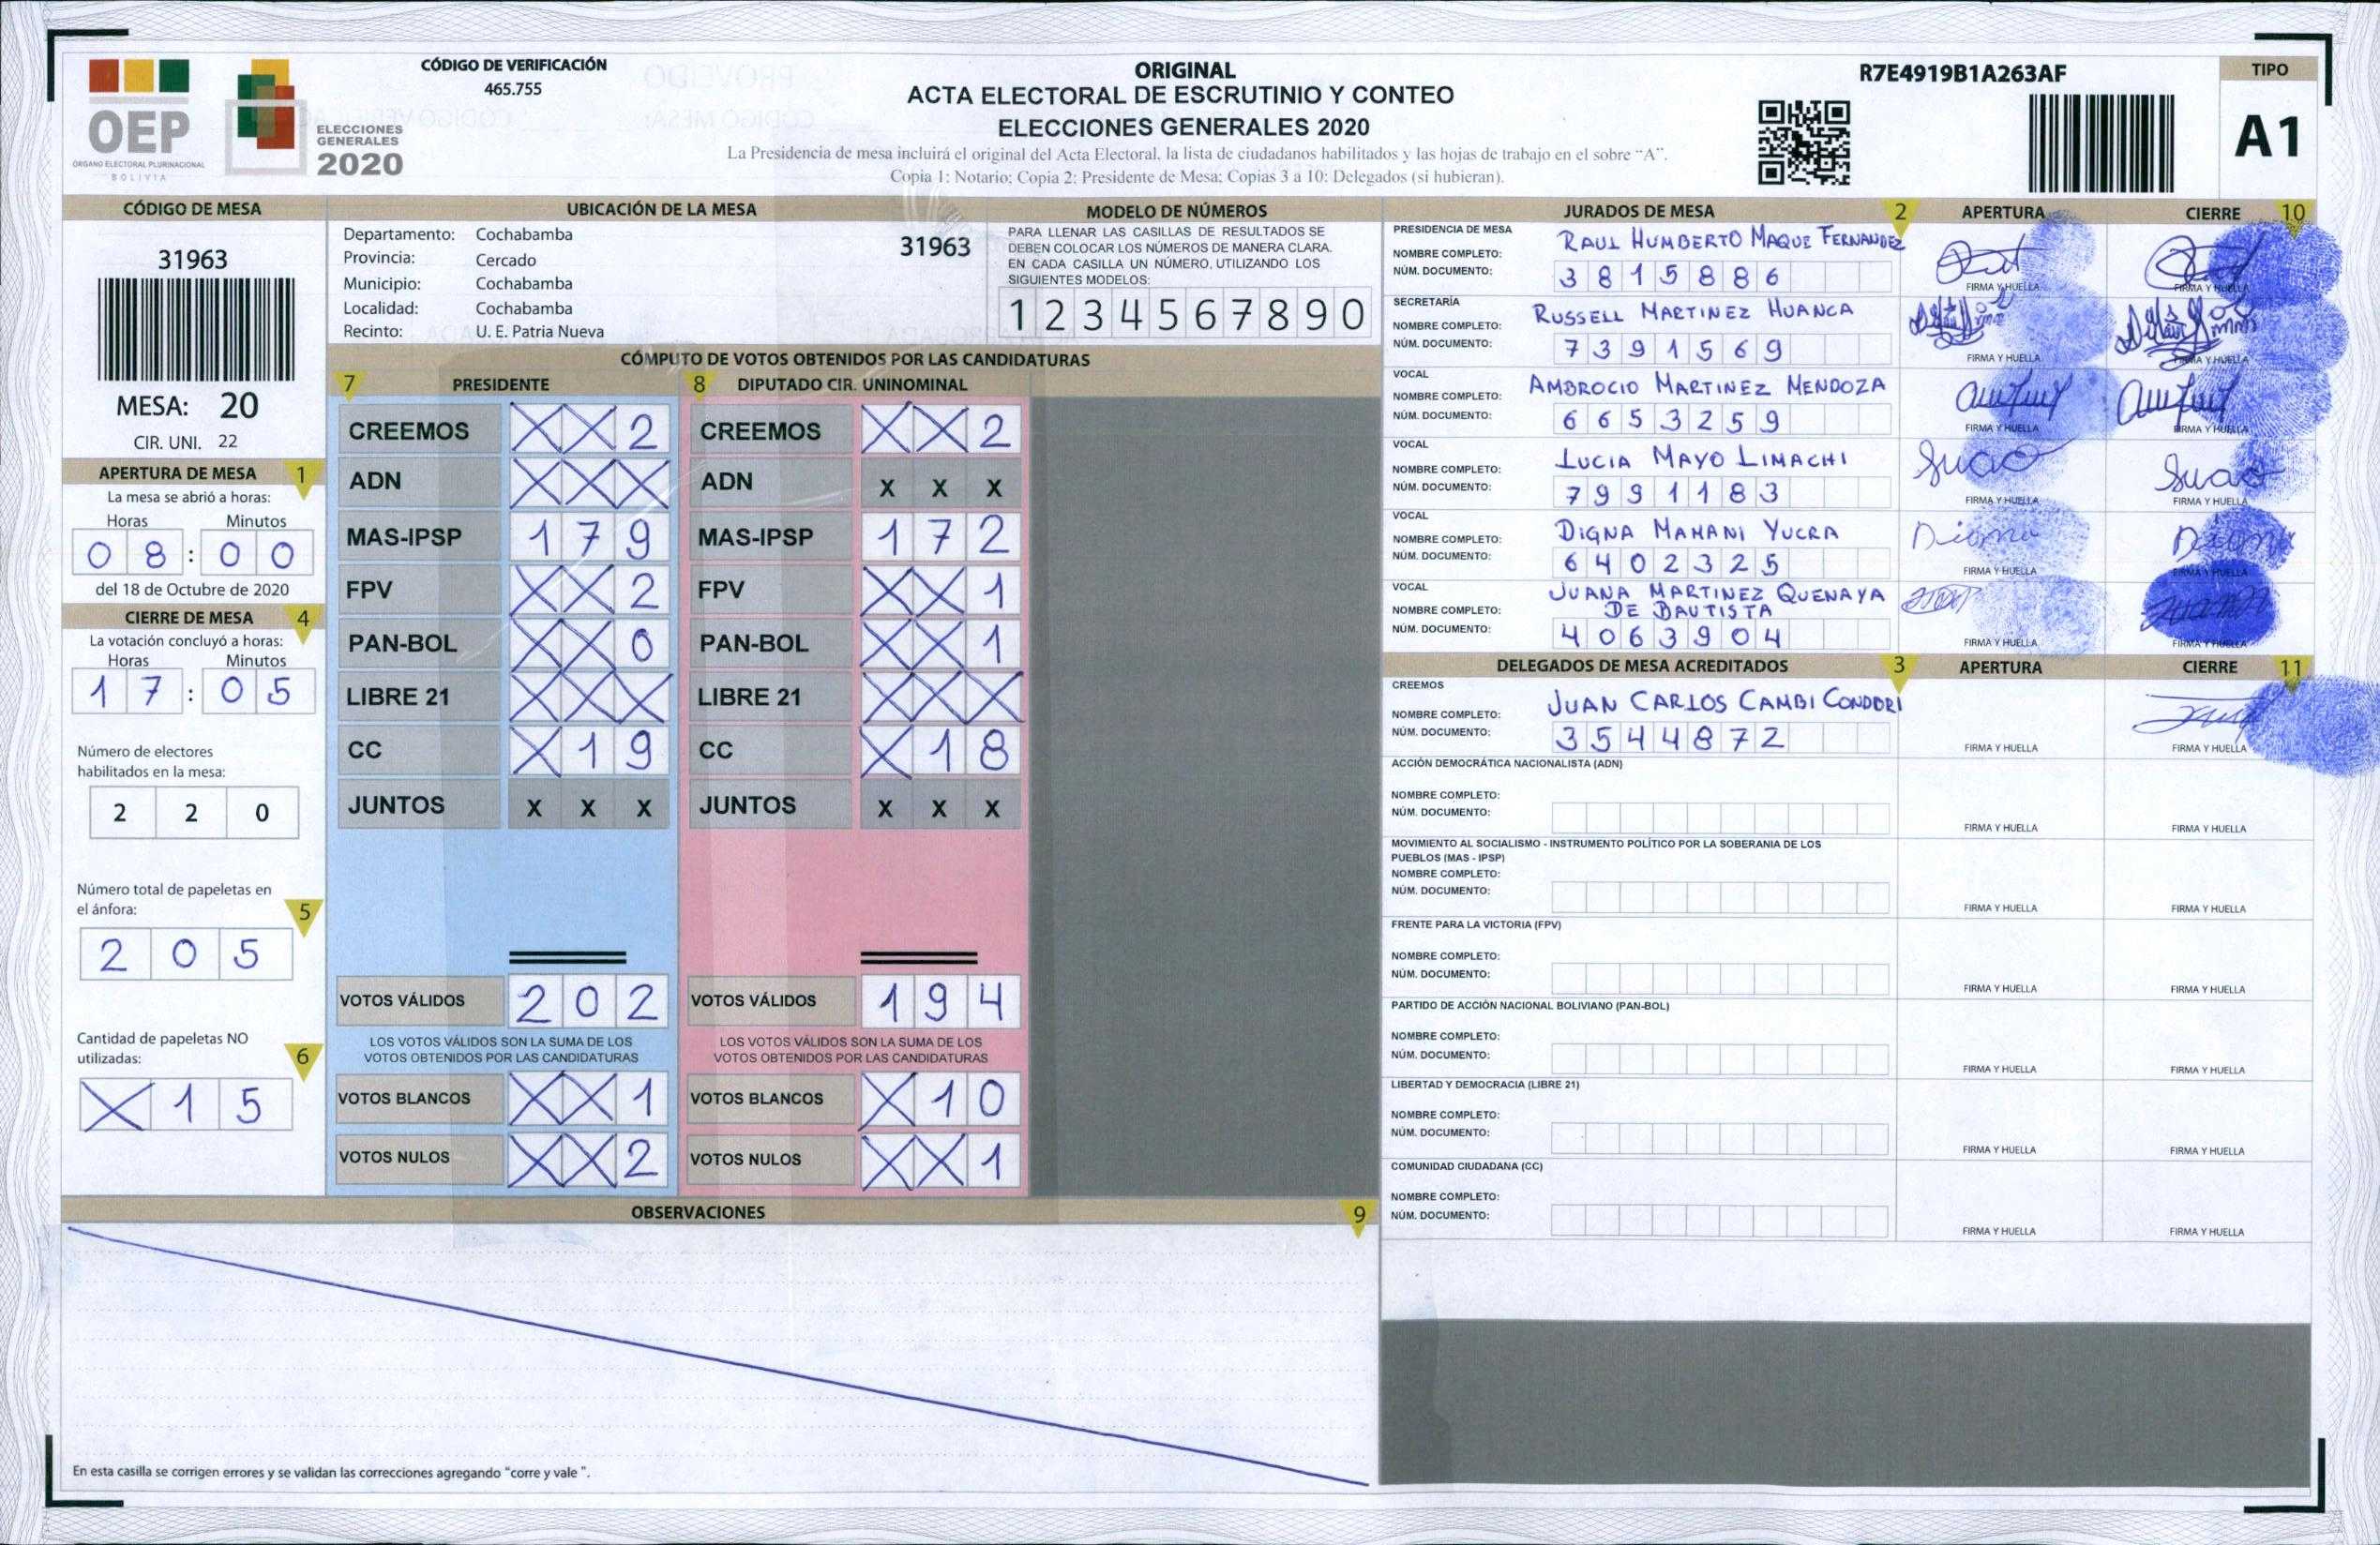 OEP
ORGANO ELECTORAL PLURINACIONAL
BOLIVIA
ELECCIONES
GENERALES
2020
CÓDIGO DE VERIFICACIÓN
465.755
ORIGINAL
ACTA ELECTORAL DE ESCRUTINIO Y CONTEO
ELECCIONES GENERALES 2020
La Presidencia de mesa incluirá el original del Acta Electoral, la lista de ciudadanos habilitados y las hojas de trabajo en el sobre "A".
Copia 1: Notario; Copia 2: Presidente de Mesa; Copias 3 a 10: Delegados (si hubieran).
R7E4919B1A263AF
TIPO
A1
CÓDIGO DE MESA
31963
MESA: 20
CIR. UNI. 22
APERTURA DE MESA 1
La mesa se abrió a horas:
Horas Minutos
0 8 : 0 0
del 18 de Octubre de 2020
CIERRE DE MESA 4
La votación concluyó a horas:
Horas Minutos
1 7 : 0 5
Número de electores
habilitados en la mesa:
2 2 0
Número total de papeletas en
el ánfora: 5
2 0 5
Cantidad de papeletas NO
utilizadas: 6
X 1 5
UBICACIÓN DE LA MESA
Departamento: Cochabamba 31963
Provincia: Cercado
Municipio: Cochabamba
Localidad: Cochabamba
Recinto: U. E. Patria Nueva
MODELO DE NÚMEROS
PARA LLENAR LAS CASILLAS DE RESULTADOS SE
DEBEN COLOCAR LOS NÚMEROS DE MANERA CLARA.
EN CADA CASILLA UN NÚMERO, UTILIZANDO LOS
SIGUIENTES MODELOS:
1 2 3 4 5 6 7 8 9 0
CÓMPUTO DE VOTOS OBTENIDOS POR LAS CANDIDATURAS
7 PRESIDENTE 8 DIPUTADO CIR. UNINOMINAL
CREEMOS X X 2 CREEMOS X X 2
ADN X X X ADN X X X
MAS-IPSP 1 7 9 MAS-IPSP 1 7 2
FPV X X 2 FPV X X 1
PAN-BOL X X 0 PAN-BOL X X 1
LIBRE 21 X X X LIBRE 21 X X X
CC X 1 9 CC X 1 8
JUNTOS X X X JUNTOS X X X
VOTOS VÁLIDOS 2 0 2 VOTOS VÁLIDOS 1 9 4
LOS VOTOS VÁLIDOS SON LA SUMA DE LOS LOS VOTOS VÁLIDOS SON LA SUMA DE LOS
VOTOS OBTENIDOS POR LAS CANDIDATURAS VOTOS OBTENIDOS POR LAS CANDIDATURAS
VOTOS BLANCOS X X 1 VOTOS BLANCOS X 1 0
VOTOS NULOS X X 2 VOTOS NULOS X X 1
OBSERVACIONES 9
En esta casilla se corrigen errores y se validan las correcciones agregando "corre y vale ".
JURADOS DE MESA 2 APERTURA CIERRE 10
PRESIDENCIA DE MESA
NOMBRE COMPLETO: RAUL HUMBERTO MAQUE FERNANDEZ
NÚM. DOCUMENTO: 3 8 1 5 8 8 6
FIRMA Y HUELLA FIRMA Y HUELLA
SECRETARÍA
NOMBRE COMPLETO: RUSSELL MARTINEZ HUANCA
NÚM. DOCUMENTO: 7 3 9 1 5 6 9
FIRMA Y HUELLA FIRMA Y HUELLA
VOCAL
NOMBRE COMPLETO: AMBROCIO MARTINEZ MENDOZA
NÚM. DOCUMENTO: 6 6 5 3 2 5 9
FIRMA Y HUELLA FIRMA Y HUELLA
VOCAL
NOMBRE COMPLETO: LUCIA MAYO LIMACHI
NÚM. DOCUMENTO: 7 9 9 1 1 8 3
FIRMA Y HUELLA FIRMA Y HUELLA
VOCAL
NOMBRE COMPLETO: DIGNA MAMANI YUCRA
NÚM. DOCUMENTO: 6 4 0 2 3 2 5
Digna
FIRMA Y HUELLA FIRMA Y HUELLA
VOCAL
NOMBRE COMPLETO: JUANA MARTINEZ QUENAYA
DE BAUTISTA
NÚM. DOCUMENTO: 4 0 6 3 9 0 4
FIRMA Y HUELLA FIRMA Y HUELLA
DELEGADOS DE MESA ACREDITADOS 3 APERTURA CIERRE 11
CREEMOS
NOMBRE COMPLETO: JUAN CARLOS CAMBI CONDORI
NÚM. DOCUMENTO: 3 5 4 4 8 7 2
FIRMA Y HUELLA FIRMA Y HUELLA
ACCIÓN DEMOCRÁTICA NACIONALISTA (ADN)
NOMBRE COMPLETO:
NÚM. DOCUMENTO:
FIRMA Y HUELLA FIRMA Y HUELLA
MOVIMIENTO AL SOCIALISMO - INSTRUMENTO POLÍTICO POR LA SOBERANIA DE LOS
PUEBLOS (MAS - IPSP)
NOMBRE COMPLETO:
NÚM. DOCUMENTO:
FIRMA Y HUELLA FIRMA Y HUELLA
FRENTE PARA LA VICTORIA (FPV)
NOMBRE COMPLETO:
NÚM. DOCUMENTO:
FIRMA Y HUELLA FIRMA Y HUELLA
PARTIDO DE ACCIÓN NACIONAL BOLIVIANO (PAN-BOL)
NOMBRE COMPLETO:
NÚM. DOCUMENTO:
FIRMA Y HUELLA FIRMA Y HUELLA
LIBERTAD Y DEMOCRACIA (LIBRE 21)
NOMBRE COMPLETO:
NÚM. DOCUMENTO:
FIRMA Y HUELLA FIRMA Y HUELLA
COMUNIDAD CIUDADANA (CC)
NOMBRE COMPLETO:
NÚM. DOCUMENTO:
FIRMA Y HUELLA FIRMA Y HUELLA